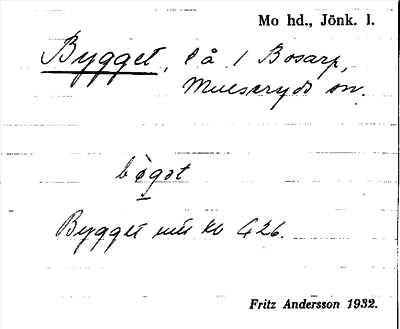 Mo hd., Jönk. l.
Bygget, på 1 Bosarp,
Mulseryds sn.
bø̀gət
Bygget enl kb 426.
Fritz Andersson 1932.